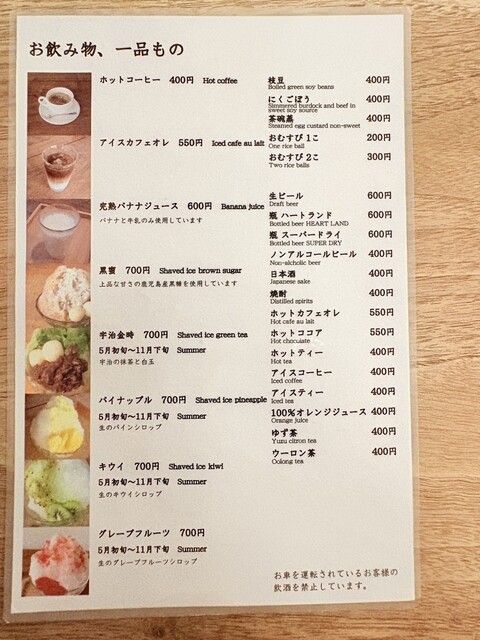 お飲み物、一品もの
ホットコーヒー 400円 Hot coffee
アイスカフェオレ 550円 Iced cafe au lait
完熟バナナジュース 600円 Banana juice
バナナと牛乳のみ使用しています
黒蜜 700円 Shaved ice brown sugar
上品な甘さの鹿児島産黒糖を使用しています
宇治金時 700円 Shaved ice green tea
5月初旬〜11月下旬 Summer
宇治の抹茶と白玉
パイナップル 700円 Shaved ice pineapple
5月初旬〜11月下旬 Summer
生のパインシロップ
キウイ 700円 Shaved ice kiwi
5月初旬〜11月下旬 Summer
生のキウイシロップ
グレープフルーツ 700円
5月初旬〜11月下旬 Summer
生のグレープフルーツシロップ
枝豆 400円
Boiled green soy beans
にくごぼう 400円
Simmered burdock and beef in
sweet soy source
茶碗蒸 400円
Steamed egg custard non-sweet
おむすび 1こ 200円
One rice ball
おむすび 2こ 300円
Two rice balls
生ビール 600円
Draft beer
瓶 ハートランド 600円
Bottled beer HEART LAND
瓶 スーパードライ 600円
Bottled beer SUPER DRY
ノンアルコールビール 400円
Non-alcholic beer
日本酒 400円
Japanese sake
焼酎 400円
Distilled spirits
ホットカフェオレ 550円
Hot cafe au lait
ホットココア 550円
Hot chocolate
ホットティー 400円
Hot tea
アイスコーヒー 400円
Iced coffee
アイスティー 400円
Iced tea
100%オレンジジュース 400円
Orange juice
ゆず茶 400円
Yuzu citron tea
ウーロン茶 400円
Oolong tea
お車を運転されているお客様の
飲酒を禁止しています。